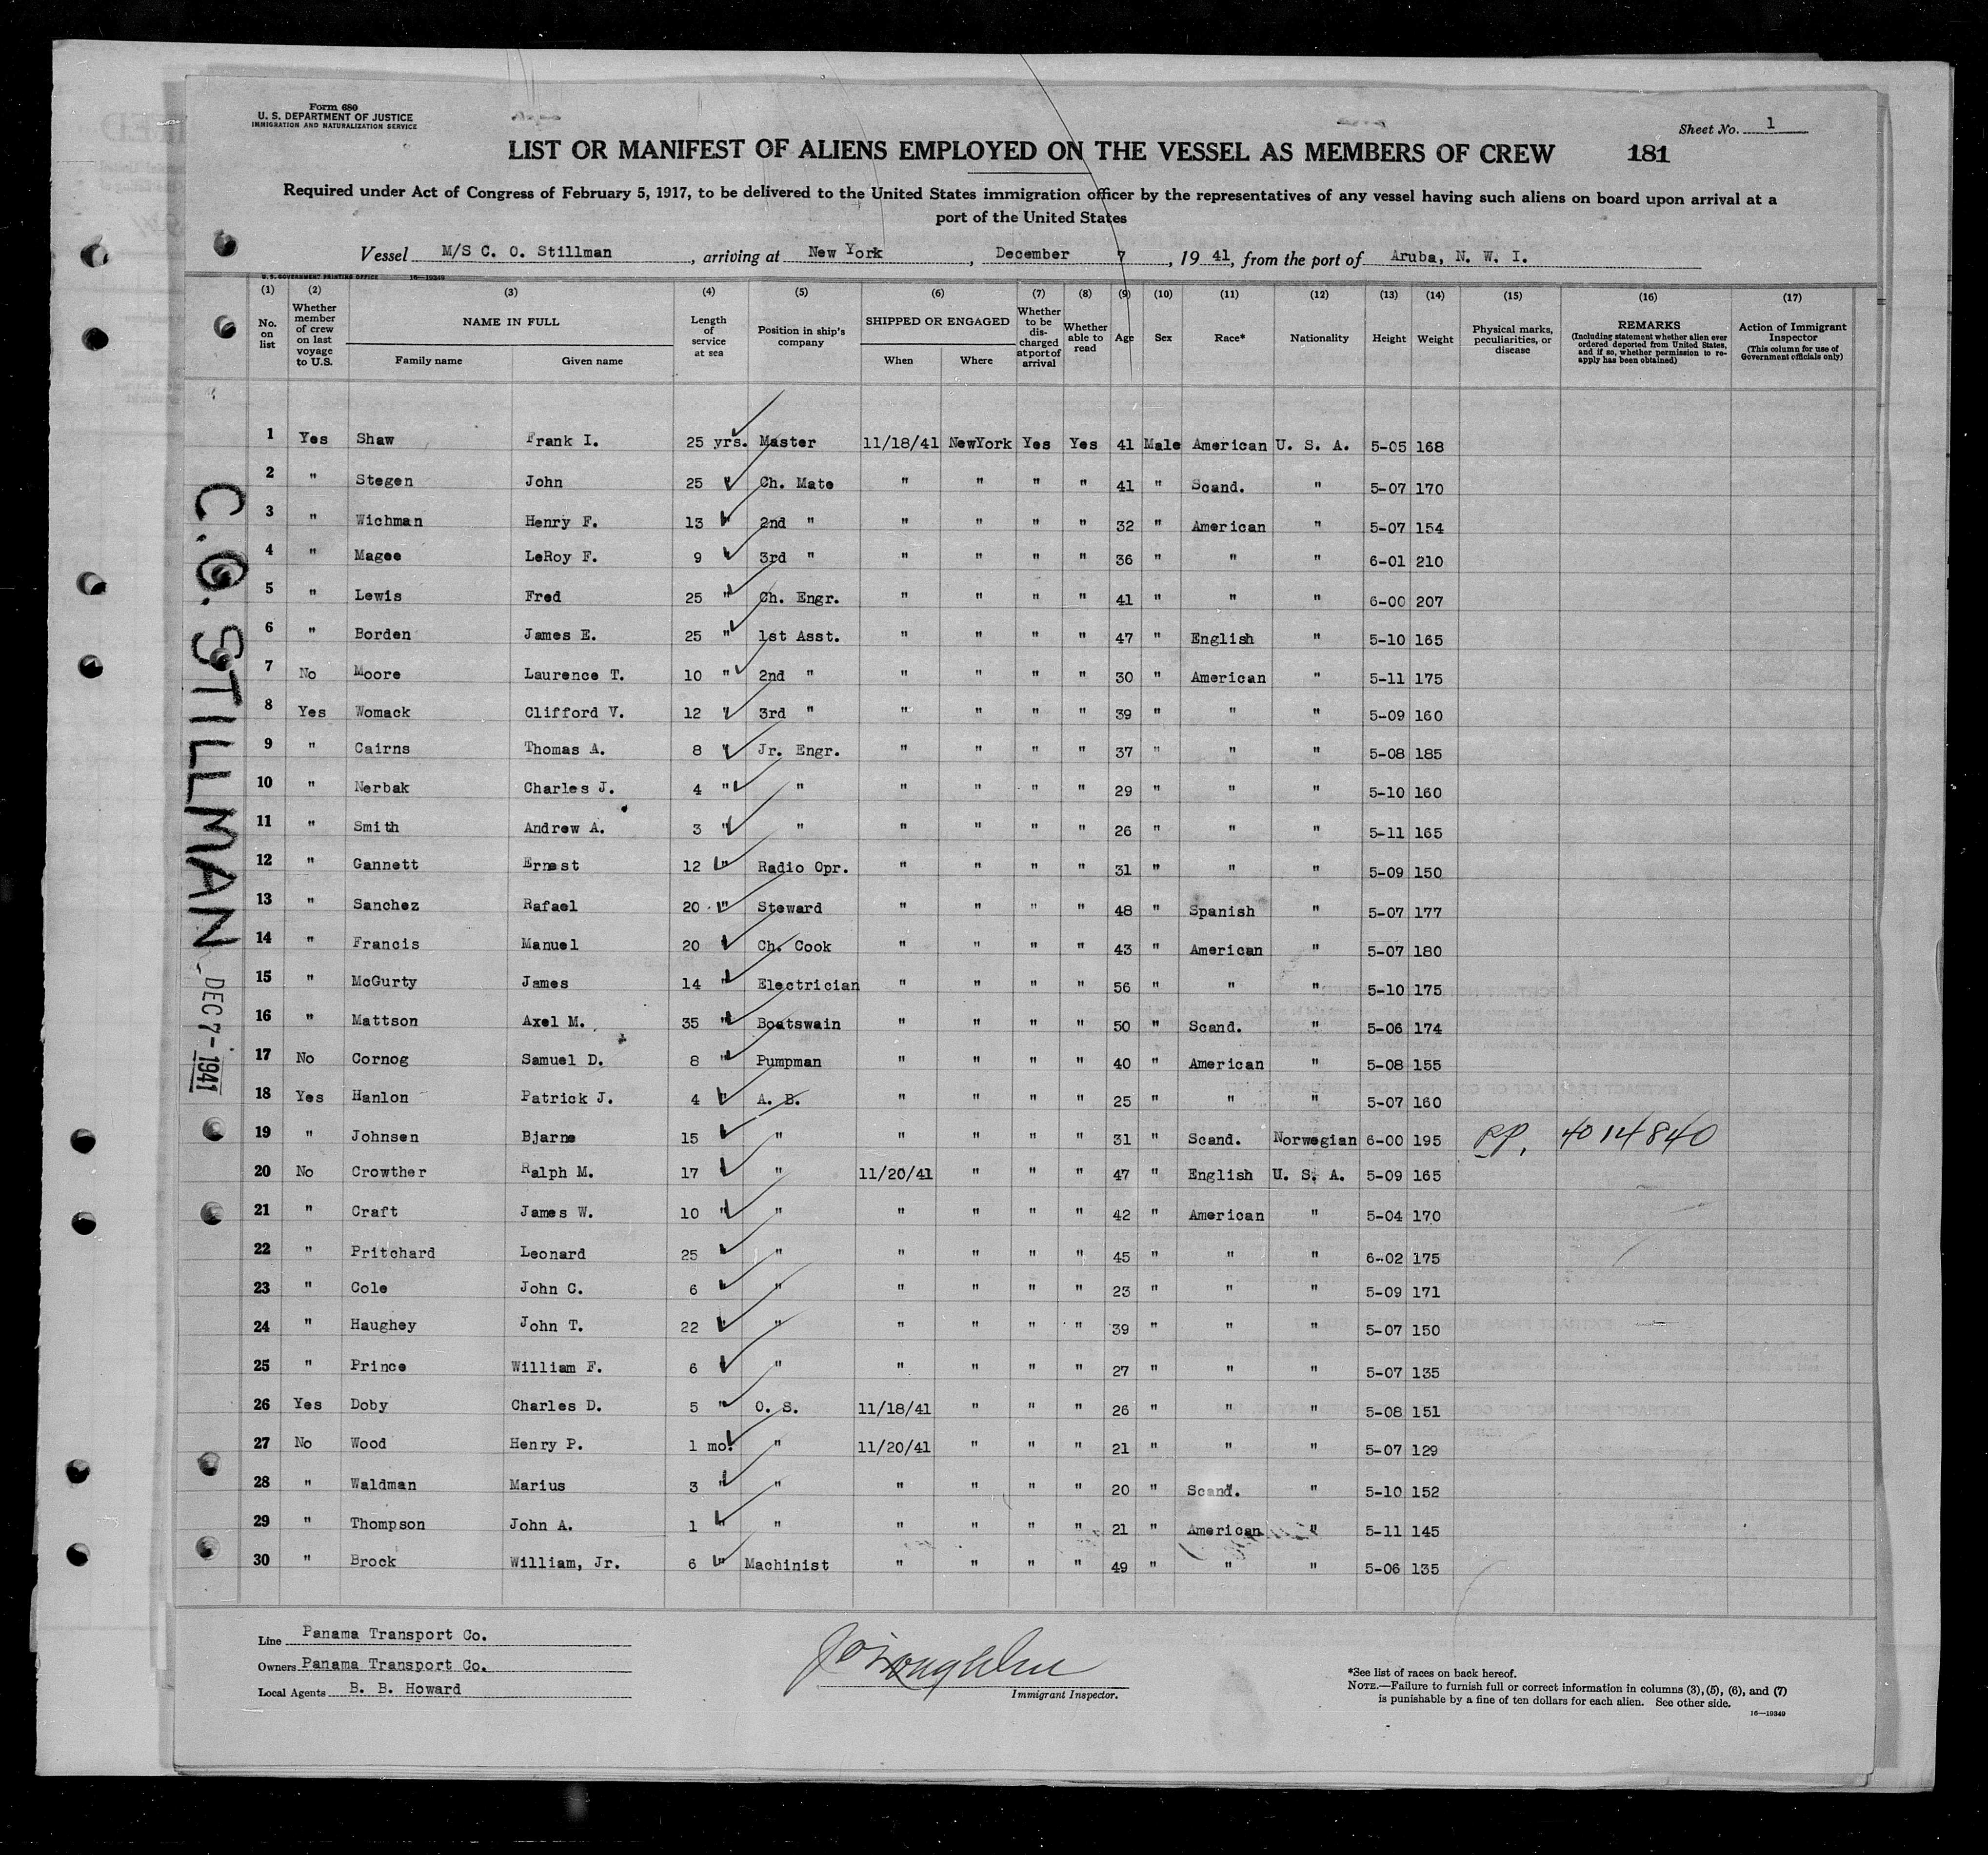 Form 680
U. S. DEPARTMENT OF JUSTICE
IMMIGRATION AND NATURALIZATION SERVICE
Sheet No. 1
LIST OR MANIFEST OF ALIENS EMPLOYED ON THE VESSEL AS MEMBERS OF CREW 181
Required under Act of Congress of February 5, 1917, to be delivered to the United States immigration officer by the representatives of any vessel having such aliens on board upon arrival at a
port of the United States
Vessel M/S C. O. Stillman, arriving at New York, December 7, 19 41, from the port of Aruba, N. W. I.
U. S. GOVERNMENT PRINTING OFFICE 16—19349
(1) (2) (3) (4) (5) (6) (7) (8) (9) (10) (11) (12) (13) (14) (15) (16) (17)
No. on list
Whether member of crew on last voyage to U.S.
NAME IN FULL
Family name Given name
Length of service at sea
Position in ship's company
SHIPPED OR ENGAGED
When Where
Whether to be discharged at port of arrival
Whether able to read
Age Sex Race* Nationality Height Weight
Physical marks, peculiarities, or disease
REMARKS
(Including statement whether alien ever ordered deported from United States, and if so, whether permission to reapply has been obtained)
Action of Immigrant Inspector
(This column for use of Government officials only)
1 Yes Shaw Frank I. 25 yrs. Master 11/18/41 NewYork Yes Yes 41 Male American U. S. A. 5-05 168
2 " Stegen John 25 " Ch. Mate " " " " 41 " Scand. " 5-07 170
3 " Wichman Henry F. 13 " 2nd " " " " " 32 " American " 5-07 154
4 " Magee LeRoy F. 9 " 3rd " " " " " 36 " " " 6-01 210
5 " Lewis Fred 25 " Ch. Engr. " " " " 41 " " " 6-00 207
6 " Borden James E. 25 " 1st Asst. " " " " 47 " English " 5-10 165
7 No Moore Laurence T. 10 " 2nd " " " " " 30 " American " 5-11 175
8 Yes Womack Clifford V. 12 " 3rd " " " " " 39 " " " 5-09 160
9 " Cairns Thomas A. 8 " Jr. Engr. " " " " 37 " " " 5-08 185
10 " Nerbak Charles J. 4 " " " " " " 29 " " " 5-10 160
11 " Smith Andrew A. 3 " " " " " " 26 " " " 5-11 165
12 " Gannett Ernest 12 " Radio Opr. " " " " 31 " " " 5-09 150
13 " Sanchez Rafael 20 " Steward " " " " 48 " Spanish " 5-07 177
14 " Francis Manuel 20 " Ch. Cook " " " " 43 " American " 5-07 180
15 " McGurty James 14 " Electrician " " " " 56 " " " 5-10 175
16 " Mattson Axel M. 35 " Boatswain " " " " 50 " Scand. " 5-06 174
17 No Cornog Samuel D. 8 " Pumpman " " " " 40 " American " 5-08 155
18 Yes Hanlon Patrick J. 4 " A. B. " " " " 25 " " " 5-07 160
19 " Johnsen Bjarne 15 " " " " " " 31 " Scand. Norwegian 6-00 195 PP. 4014840
20 No Crowther Ralph M. 17 " " 11/20/41 " " " 47 " English U. S. A. 5-09 165
21 " Craft James W. 10 " " " " " " 42 " American " 5-04 170
22 " Pritchard Leonard 25 " " " " " " 45 " " " 6-02 175
23 " Cole John C. 6 " " " " " " 23 " " " 5-09 171
24 " Haughey John T. 22 " " " " " " 39 " " " 5-07 150
25 " Prince William F. 6 " " " " " " 27 " " " 5-07 135
26 Yes Doby Charles D. 5 " O. S. 11/18/41 " " " 26 " " " 5-08 151
27 No Wood Henry P. 1 mo. " 11/20/41 " " " 21 " " " 5-07 129
28 " Waldman Marius 3 " " " " " " 20 " Scand. " 5-10 152
29 " Thompson John A. 1 " " " " " " 21 " American " 5-11 145
30 " Brock William, Jr. 6 " Machinist " " " " 49 " " " 5-06 135
C.O. STILLMAN DEC 7 - 1941
Line Panama Transport Co.
Owners Panama Transport Co.
Local Agents B. B. Howard
Immigrant Inspector.
*See list of races on back hereof.
NOTE.—Failure to furnish full or correct information in columns (3), (5), (6), and (7)
is punishable by a fine of ten dollars for each alien. See other side.
16—19349